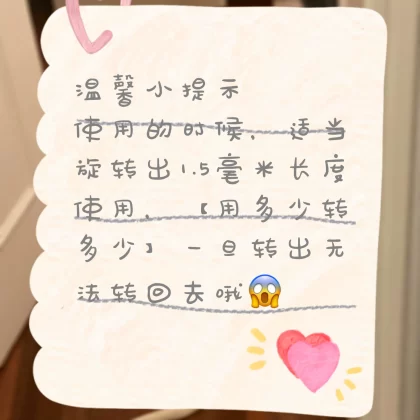 温馨小提示
使用的时候，适当
旋转出1.5毫米长度
使用，【用多少转
多少】一旦转出无
法转回去哦😱